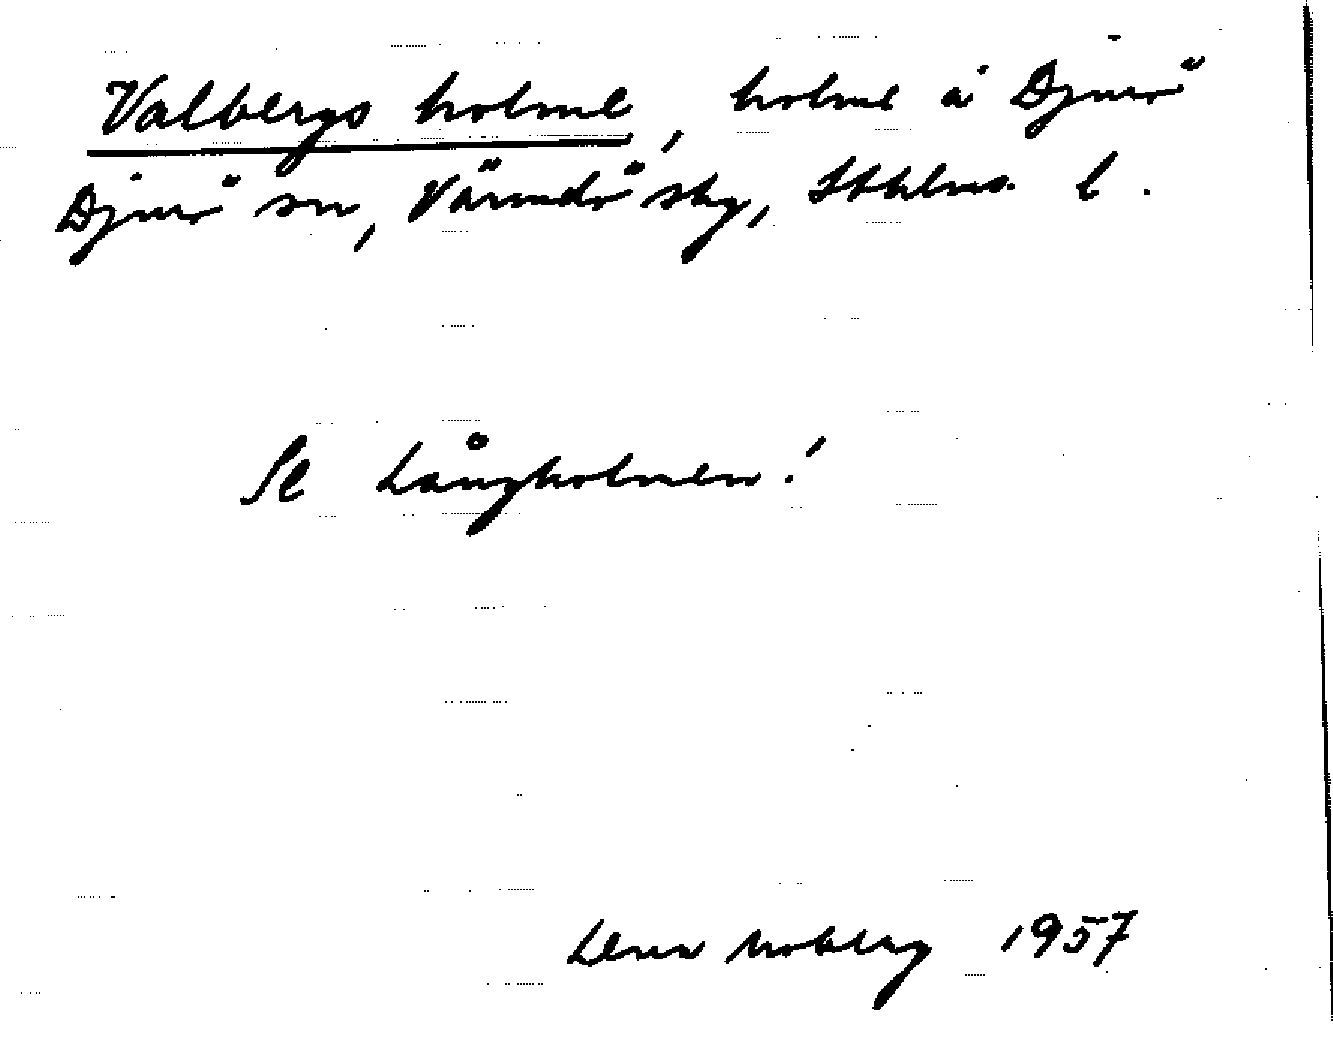 Valbergs holme, holme å Djurö
Djurö sn, Värmdö skg, Sthlms l.
Se Långholmen!
Lena Moberg 1957